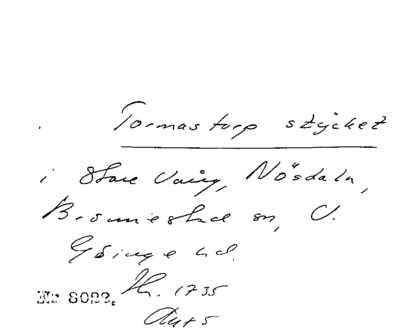 Tormastorp stycket
i Stare Vång, Nösdala,
Brönnestad sn, V.
Göinge hd.
No 8022. Jh. 1735
Ant 5